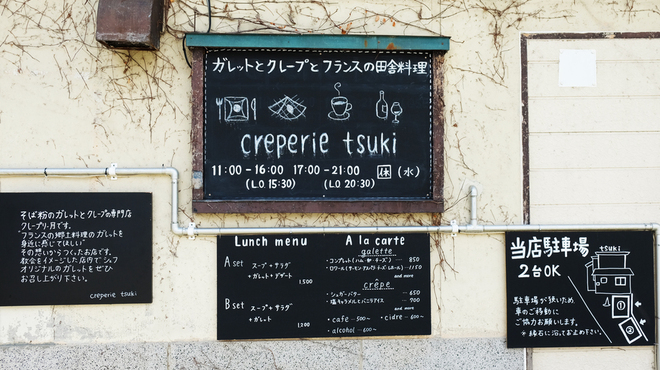 ガレットとクレープとフランスの田舎料理
creperie tsuki
11:00-16:00 17:00-21:00 休(水)
(L.O 15:30) (L.O 20:30)
そば粉のガレットとクレープの専門店
クレープリ・月です。
"フランスの郷土料理のガレットを
身近に感じてほしい"
その想いからつくったお店です。
教会をイメージした店内でシェフ
オリジナルのガレットをぜひ
お召し上がり下さい。
creperie tsuki
Lunch menu
A set スープ+サラダ
+ガレット+デザート
1500
B set スープ+サラダ
+ガレット
1200
A la carte
galette
・コンプレット(ハム・卵・チーズ) 850
1150
and more
crêpe
・シュガーバター 650
・塩キャラメルとバニラアイス 900
and more
・cafe 500~ ・cidre 600~
・alcohol 600~
当店駐車場
2台OK
tsuki
駐車場が狭いため
車のご移動に
ご協力お願いします。
*縁石に沿ってお止め下さい。
①
②